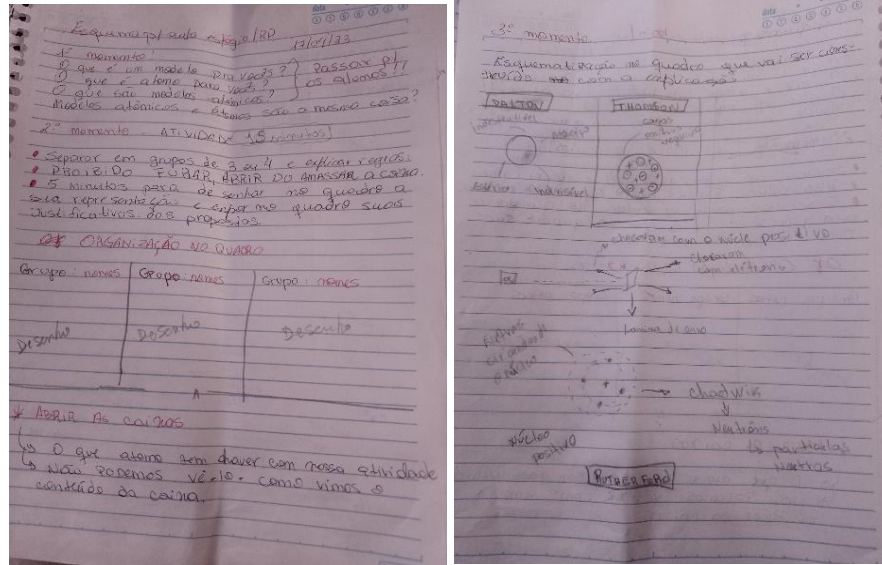 Esquema p/ aula estágio/RP
17/01/23
1º momento:
O que é um modelo pra vocês?
O que é atomo para vocês?
O que são modelos atômicos?
Modelos atômicos e átomos são a mesma coisa?
Passar p/
os alunos!!
2º momento - ATIVIDADE 15 minutos
• Separar em grupos de 3 ou 4 e explicar regras:
• PROIBIDO FURAR, ABRIR OU AMASSAR A CAIXA.
• 5 minutos para desenhar no quadro a
sua representação e expor no quadro suas
justificativas dos propostos.
ORGANIZAÇÃO NO QUADRO
Grupo: nomes
Grupo: nomes
Grupo: nomes
Desenho
Desenho
Desenho
* ABRIR AS CAIXAS
↳ O que atomo tem haver com nossa atividade
↳ Não podemos vê-lo. como vimos o
conteúdo da caixa.
data
3º momento
Esquematização no quadro que vai ser cons-
truído com a explicação
DALTON
Indivisível
THOMSON
cargas
positiva
negativa
chocaram com o núcleo positivo
Lamina de ouro
núcleo
Núcleo
positivo
Chadwik
Neutrons
↳ particulas
Neutras
RUTHERFORD